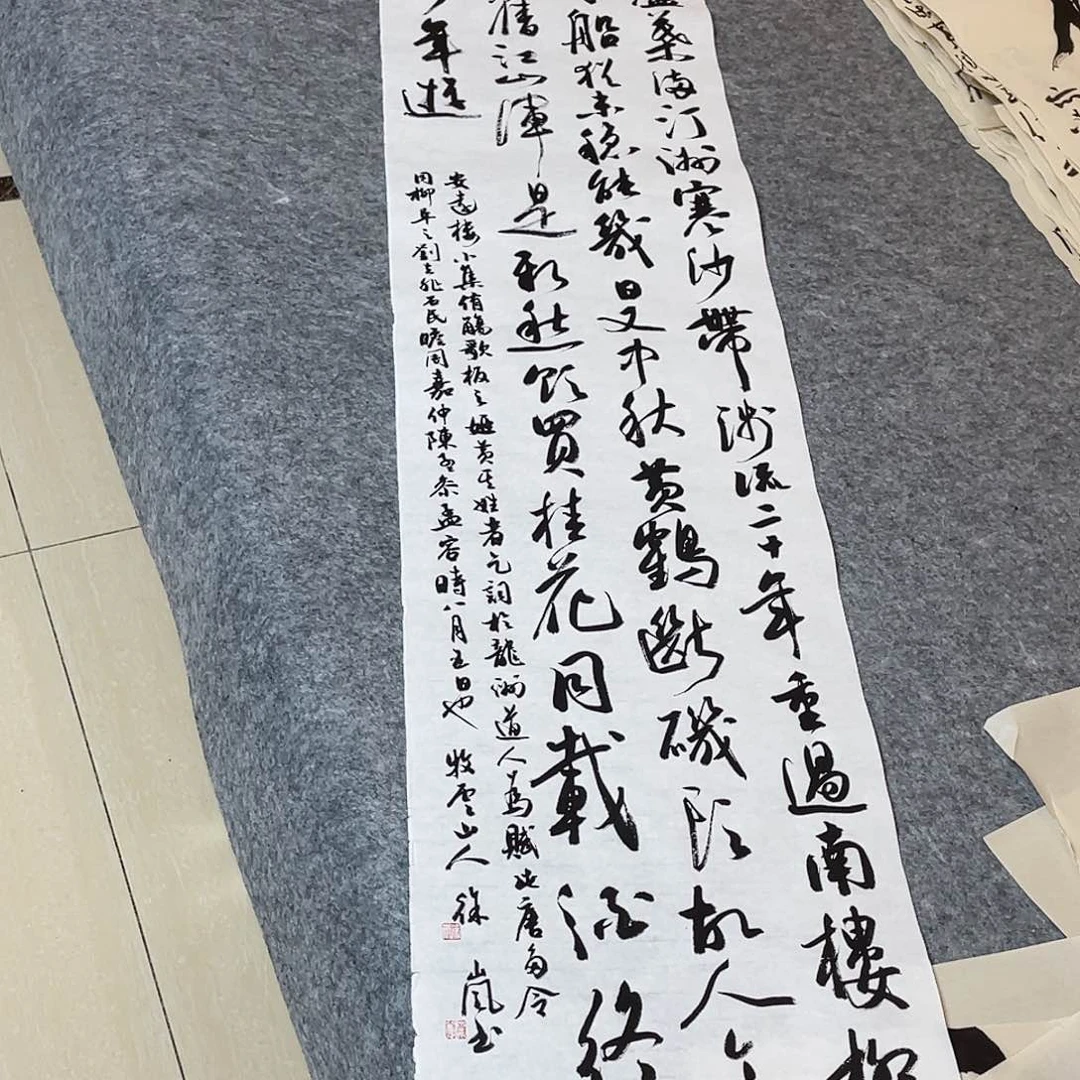 蘆葉滿汀洲寒沙帶淺流二十年重過南樓柳
船猶未穩能幾日又中秋黃鶴斷磯頭故人今
舊江山渾是新愁欲買桂花同載酒終
少年遊
安遠樓小集侑觴歌板之姬黃其姓者乞詞於龍洲道人為賦此唐多令
同柳阜之劉去非石民瞻周嘉仲陳孟參孟容時八月五日也 牧雲山人 徐嵐書